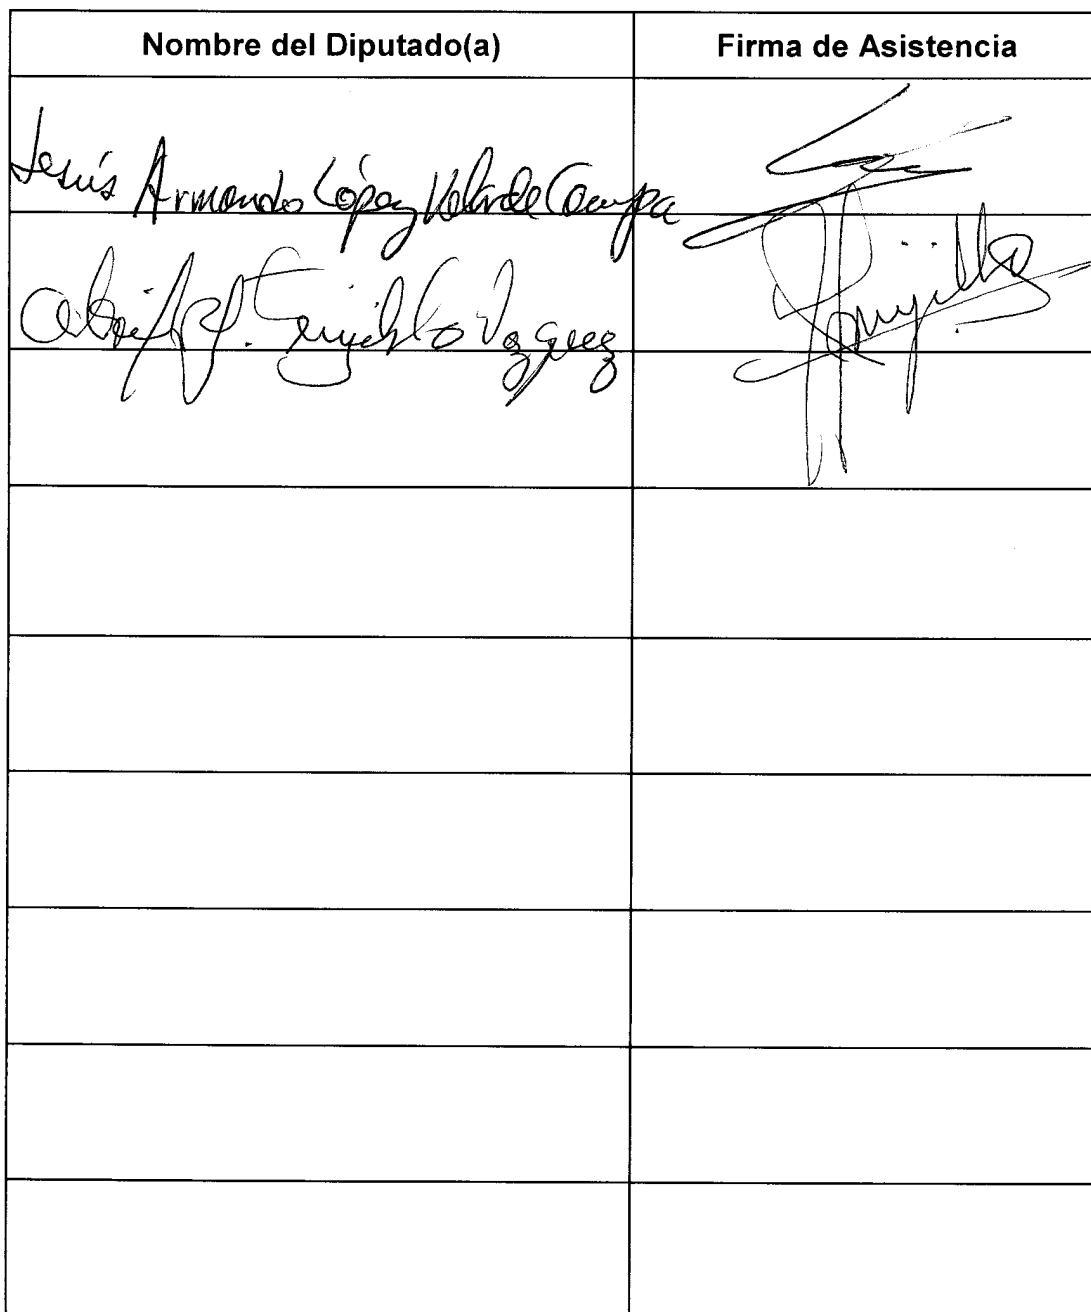 Nombre del Diputado(a) Firma de Asistencia
Jesús Armando López Velarde Campa
Trujillo Vazquez Trujillo